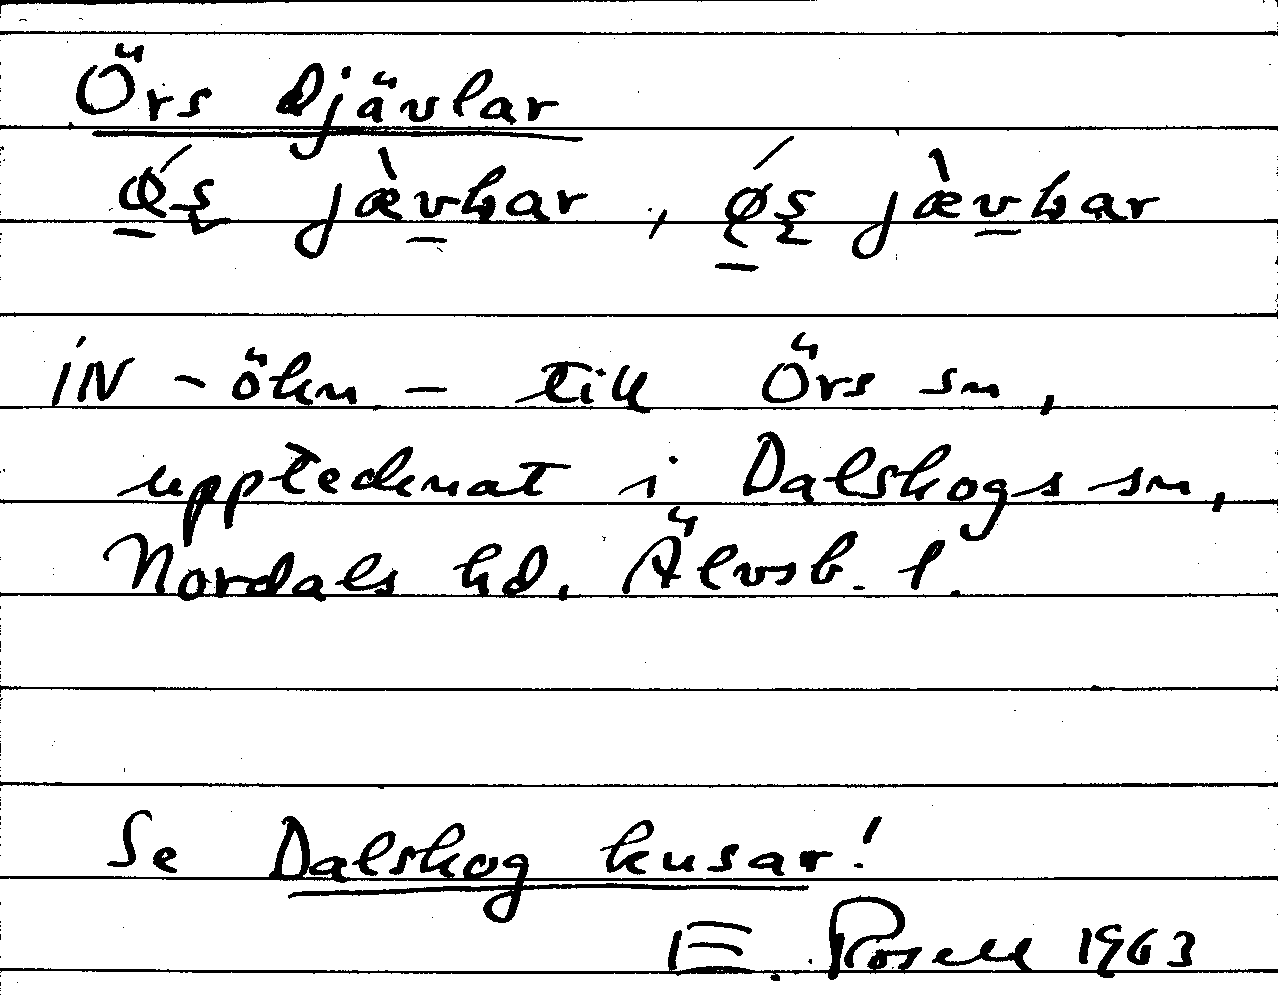 Örs djävlar
ǿş jæ̀vḷar, ǿş jæ̀vḷar
IN - ökn - till Örs sn,
upptecknat i Dalskogs sn,
Nordals hd. Älvsb. l.
Se Dalskog kusar!
E. Rosell 1963